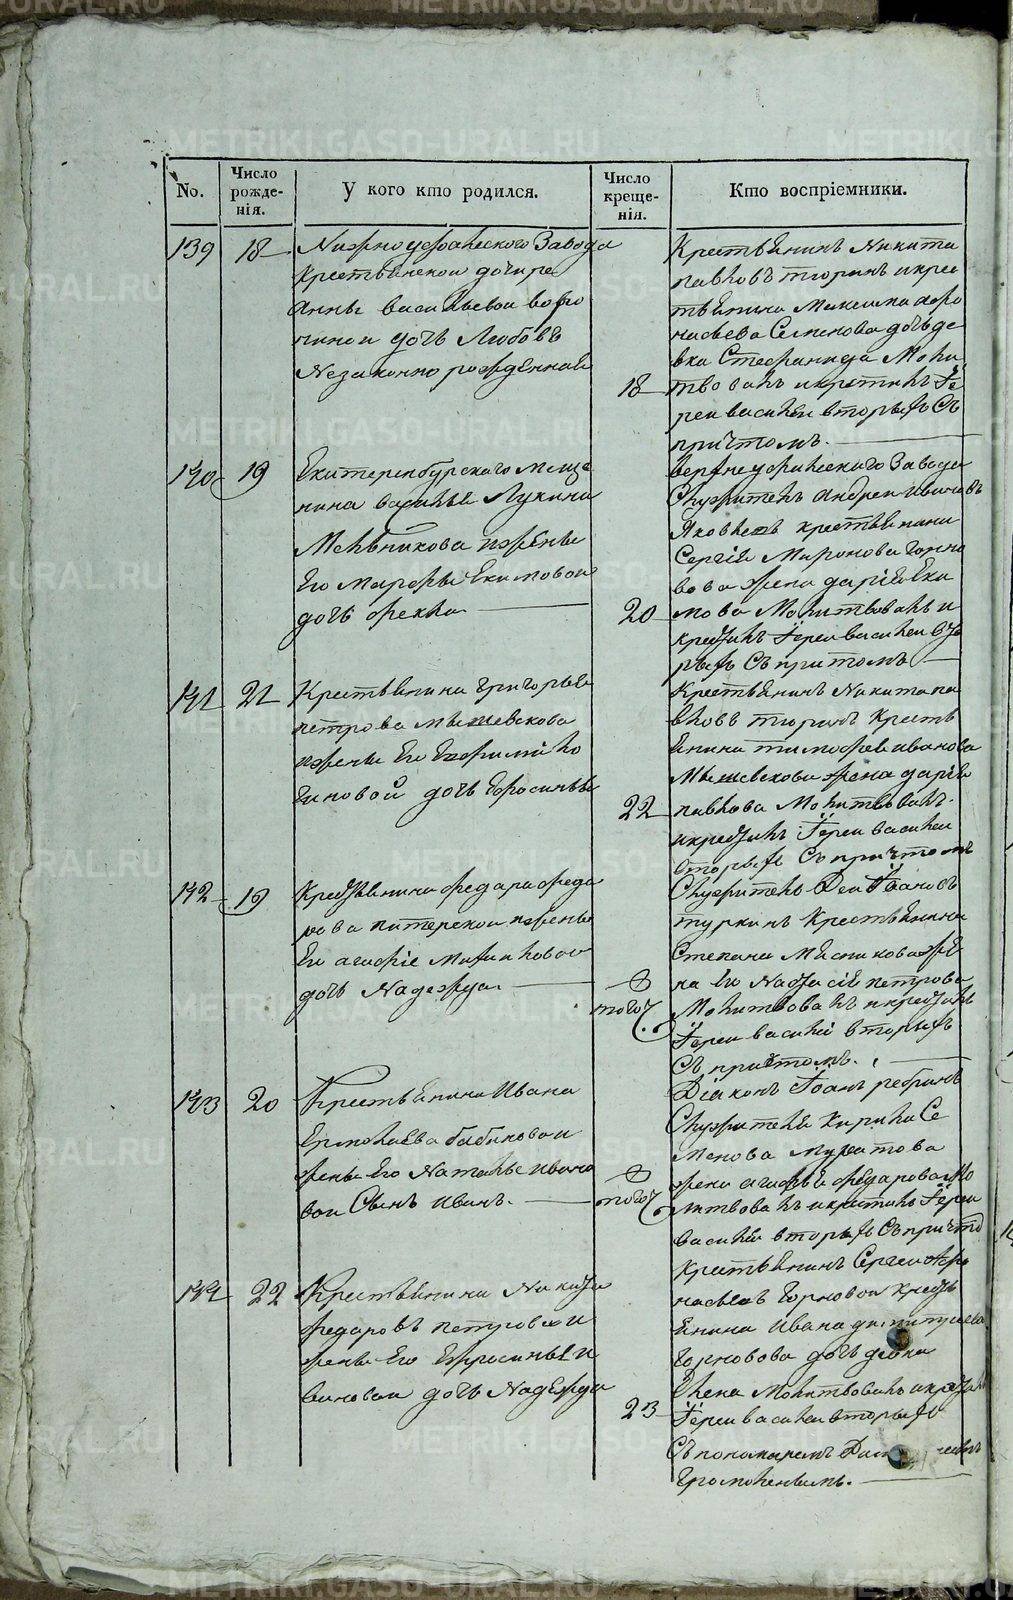 No.
Число рожде-нія.
У кого кто родился.
Число креще-нія.
Кто воспріемники.
139
18
Нижноуфалеского Завода
крестьянской дочире
Анны васильевой воро
нинои дочь Любовь
Незаконно рожденная
18
Крестьянинъ Никита
павловъ тюринъ икрес
тьянина
насьева Семенова дочь де
вка Стефанида Моли
твовалъ икрстилъ Іе
реи василеи вторыхъ Съ
причтомъ.
140
19
Екатеренбурского меща
нина василья Лукина
Мельникова ижены
Его марфы Екимовои
дочь фекла
20
верхнеуфалеского Завода
Служитель андреи ивановъ
Яковлевъ крестьянина
Сергія Миронова горно
вова жена дарія Еки
мова Молитвовалъ и
крестилъ Іереи василеи вто
рыхъ Съ притомъ
141
21
Крестьянина григорья
петрова мышевскова
ижены Его Евфиміи ло
гиновой дочь Ефросинья
22
Крестьянинъ Никита па
вловъ тюринъ Кресть
янина тимофея иванова
Мышевскова жена дарія
павлова Молитвовалъ
икрестилъ Іереи василеи
вторыхъ Съ причтомъ
142
19
Крестьянина федара феда
рова питерскои ижены
Его агафіе Михаиловои
дочь Надежда.
того
Служитель Іоановъ
туркинъ Крестьянина
Степана Мясникова же
на Его Настасія петрова
Молитвовалъ икрестилъ
Іереи василеи вторыхъ
Съ причтомъ.
143
20
Крестьянина Ивана
Ермолаева бабиковои
жены Его Натальи ивано
вои Сынъ иванъ.
того
Діаконъ Іоанъ ребринъ
Служителя Кирила Се
менова муратова
жена агафья федарова Мо
литвовалъ икрстилъ Іереи
василеи вторыхъ Съ причто
144
22
Крестьянина Никиты
федаровъ петровскои
жены Его Ефросиньи и
вановои дочь Надежда
23
Крестьянинъ Сергеи афа
насьевъ Горновои Кресть
янина ивана дмитриева
Горновова дочь девка
Елена Молитвовалъ икрестилъ
Іереи василеи вторыхъ
Съ пономаремъ
METRIKI.GASO-URAL.RU